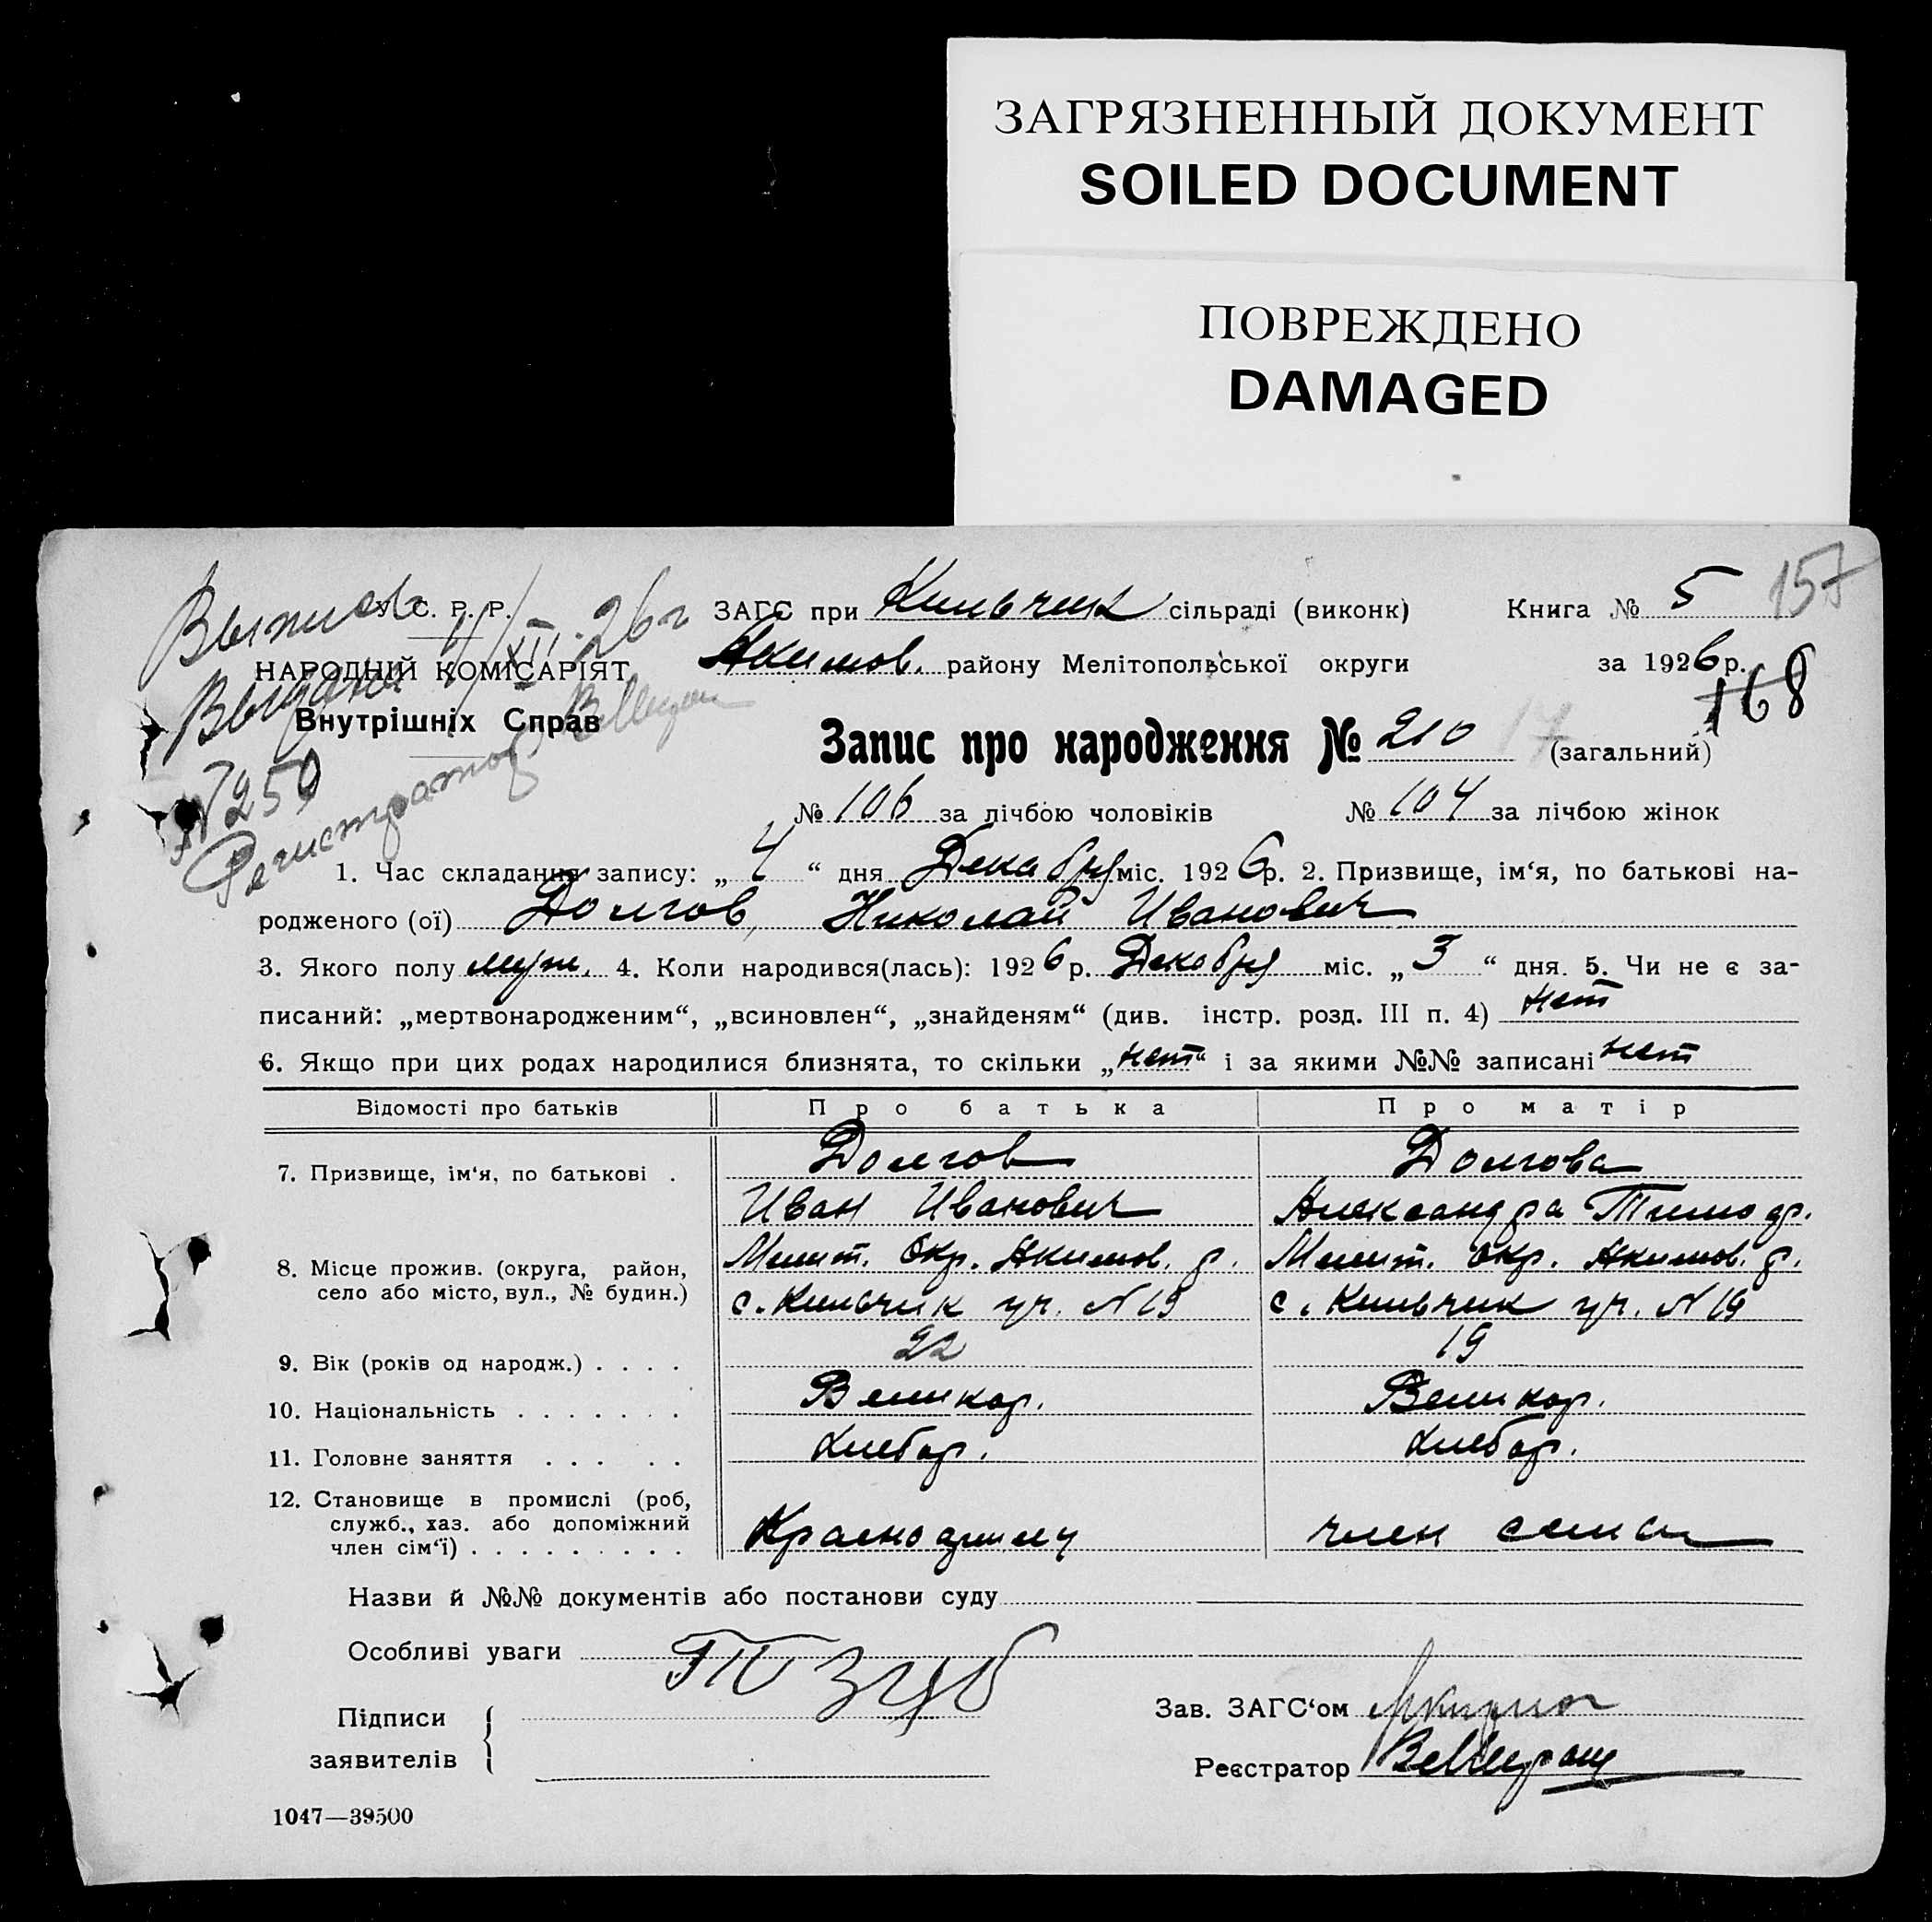 ЗАГРЯЗНЕННЫЙ ДОКУМЕНТ
SOILED DOCUMENT
ПОВРЕЖДЕНО
DAMAGED
Выпись У. С. Р. Р. 4/XII.26 г ЗАГС при Кильчик сільраді (виконк) Книга № 5 157
НАРОДНІЙ КОМІСАРІЯТ Акимов. району Мелітопольської округи за 1926 р.
Выдана 168
Внутрішніх Справ
N 259 Запис про народження № 210 17 (загальний)
Регистратор
№ 106 за лічбою чоловіків № 104 за лічбою жінок
1. Час складання запису: „ 4 “ дня Декабря міс. 1926 р. 2. Призвище, ім‘я, по батькові на-
родженого (ої) Долгов, Николай Иванович
3. Якого полу муж. 4. Коли народився(лась): 1926 р. Декабря міс. „ 3 “ дня. 5. Чи не є за-
писаний: „мертвонародженим“, „всиновлен“, „знайденям“ (див. інстр. розд. III п. 4) нет
6. Якщо при цих родах народилися близнята, то скільки „нет“ і за якими №№ записані нет
Відомості про батьків Про батька Про матір
7. Призвище, ім‘я, по батькові . Долгов Долгова
Иван Иванович Александра Тимоф.
8. Місце прожив. (округа, район, село або місто, вул., № будин.) Мелит. Окр. Акимов. р. Мелит. окр. Акимов. р.
с. Кильчик уч. N 19 с. Кильчик уч. N 19
9. Вік (років од народж.) . . . . 22 19
10. Національність . . . . . . . Великор. Великор.
11. Головне заняття . . . . . Хлебор. Хлебор.
12. Становище в промислі (роб,
служб., хаз. або допоміжний
член сім‘ї) . . . . . . . . . Красноармеец член семьи
Назви й №№ документів або постанови суду
Особливі уваги
Підписи
заявителів
Зав. ЗАГС‘ом
Реєстратор
1047—39500